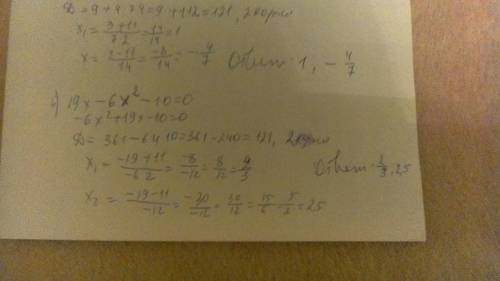 D = 9 + 4·7·4 = 9 + 112 = 121, 2 корня
x₁ = 3+11 / 7·2 = 14/14 = 1
x = 3-11 / 14 = -8/14 = -4/7 Ответ: 1, -4/7
19x - 6x² - 10 = 0
-6x² + 19x - 10 = 0
D = 361 - 6·4·10 = 361 - 240 = 121, 2 корня
x₁ = -19+11 / -6·2 = -8/-12 = 8/12 = 2/3 Ответ: 2/3, 2,5
x₂ = -19-11 / -12 = -30/-12 = 30/12 = 15/6 = 5/2 = 2,5